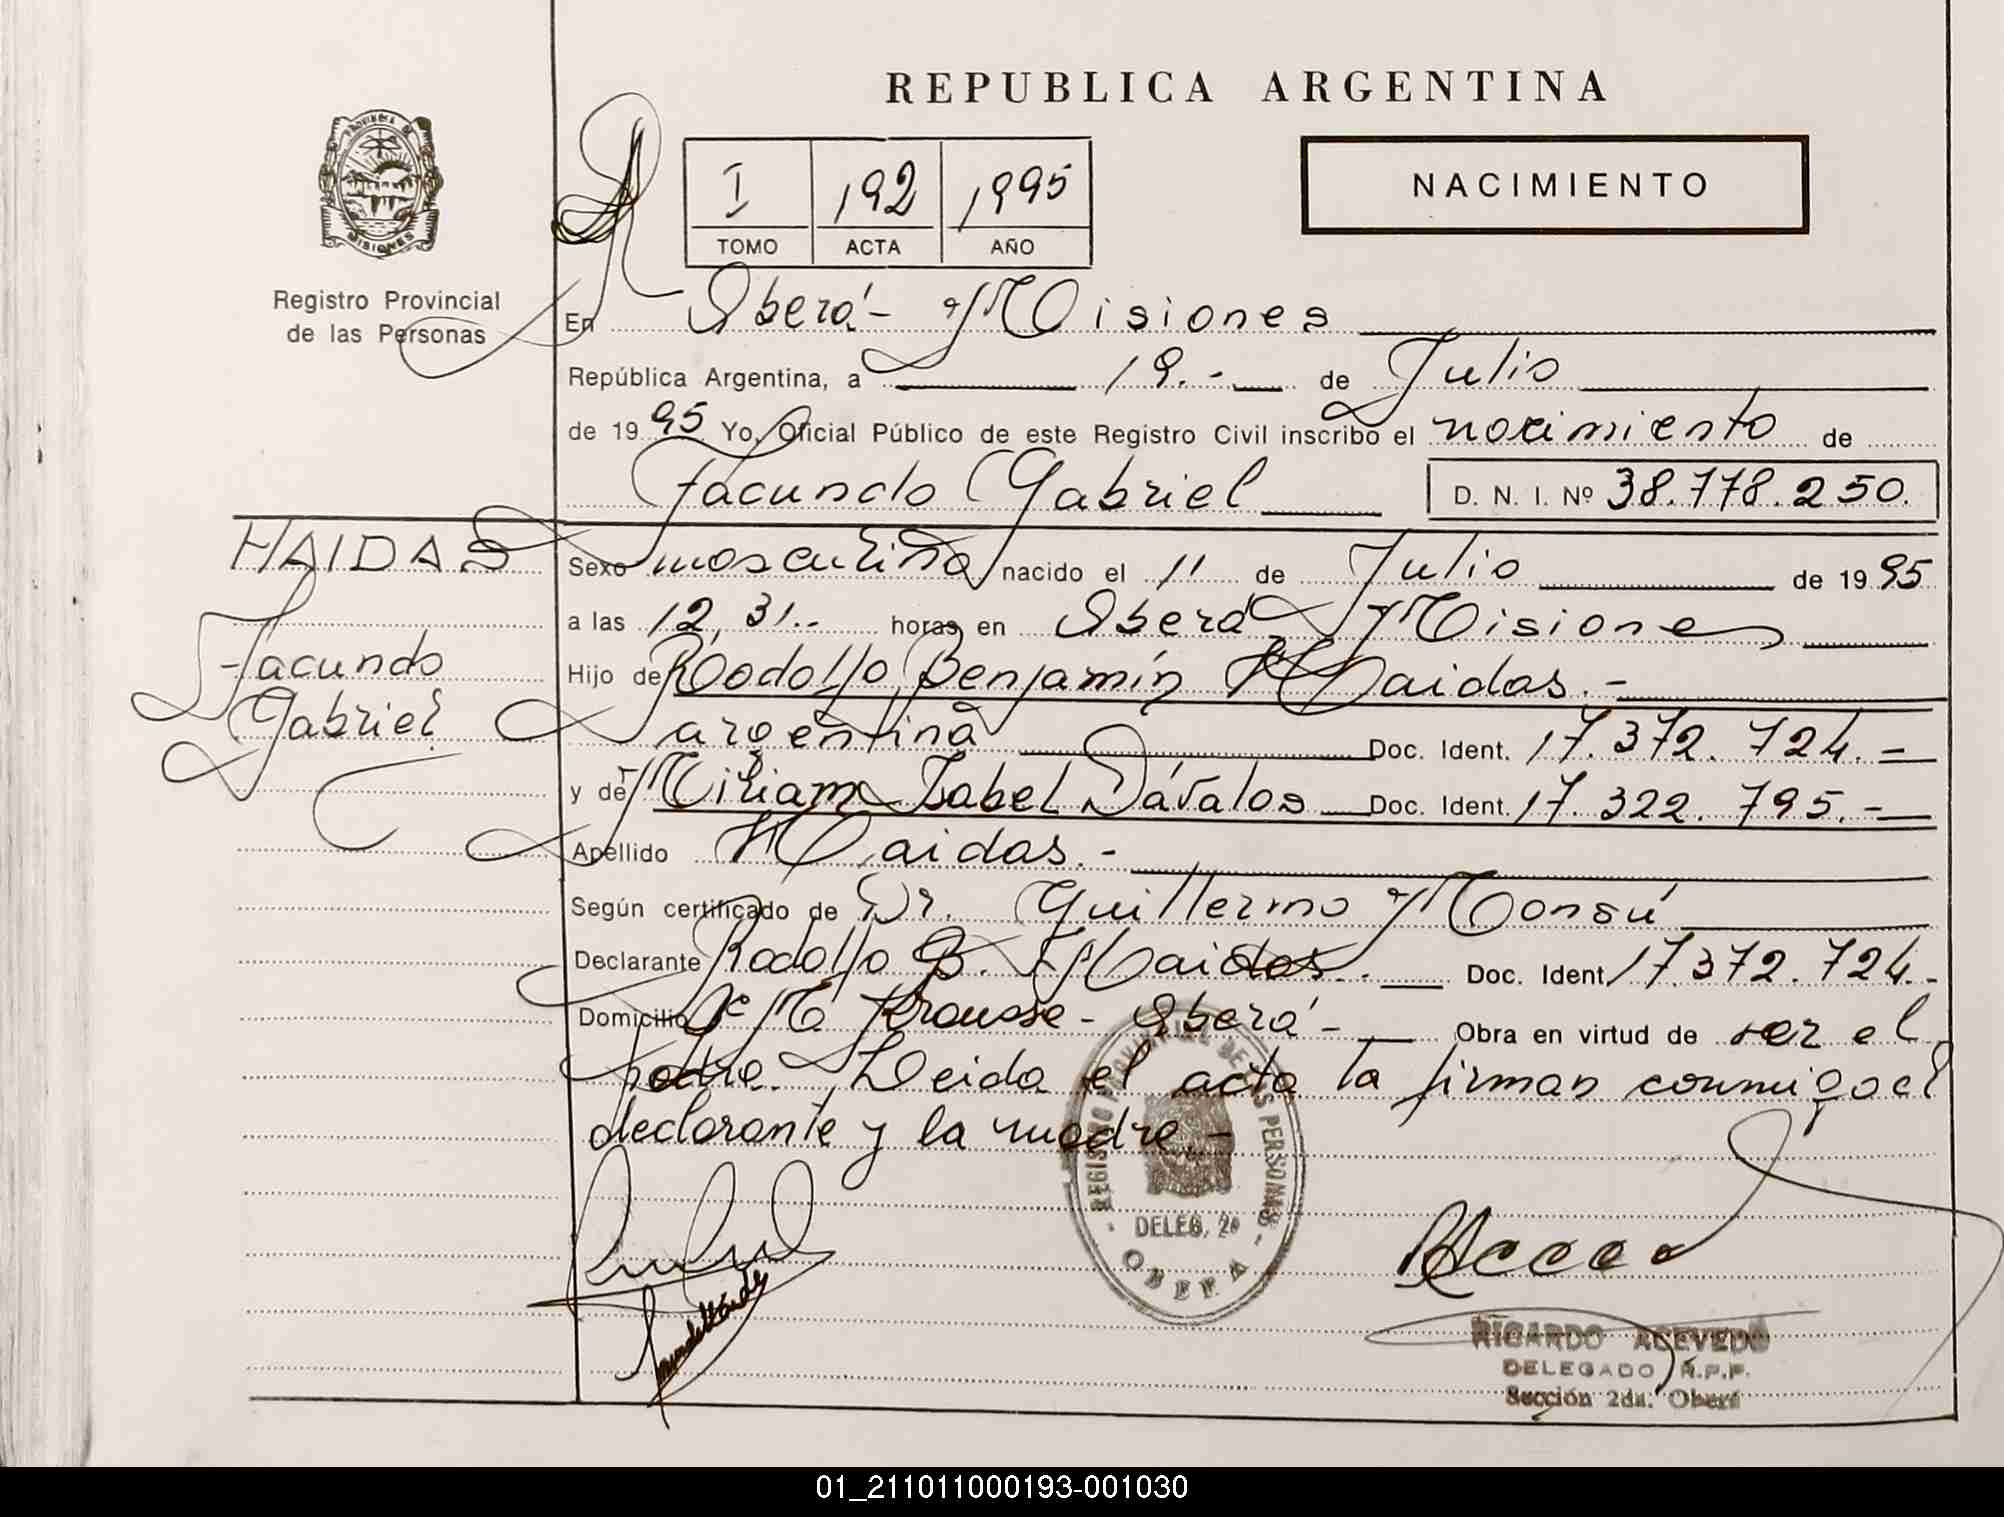 REPUBLICA ARGENTINA
PROVINCIA DE
MISIONES
Registro Provincial
de las Personas
I 192 1995
TOMO ACTA AÑO
NACIMIENTO
En Oberá - Misiones
República Argentina, a 19.- de Julio
de 1995 Yo, Oficial Público de este Registro Civil inscribo el nacimiento de
Facundo Gabriel D. N. I. Nº 38.778.250.
HAIDAS
Facundo
Gabriel
Sexo masculino nacido el 11 de Julio de 1995
a las 12,31.- horas en Oberá Misiones
Hijo de Rodolfo Benjamín Haidas.-
argentina Doc. Ident. 17.372.724.=
y de Miriam Isabel Dávalos Doc. Ident. 17.322.795.-
Apellido Haidas.-
Según certificado de Dr. Guillermo Monsú
Declarante Rodolfo B. Haidas. Doc. Ident. 17.372.724.-
Domicilio Krausse - Oberá - Obra en virtud de ser el
padre. Leida el acta la firman conmigo el
declarante y la madre.-
REGISTRO PROVINCIAL DE LAS PERSONAS
DELEG. 2ª
- OBERA -
RICARDO ACEVEDO
DELEGADO R.P.P.
Sección 2da. Oberá
01_211011000193-001030